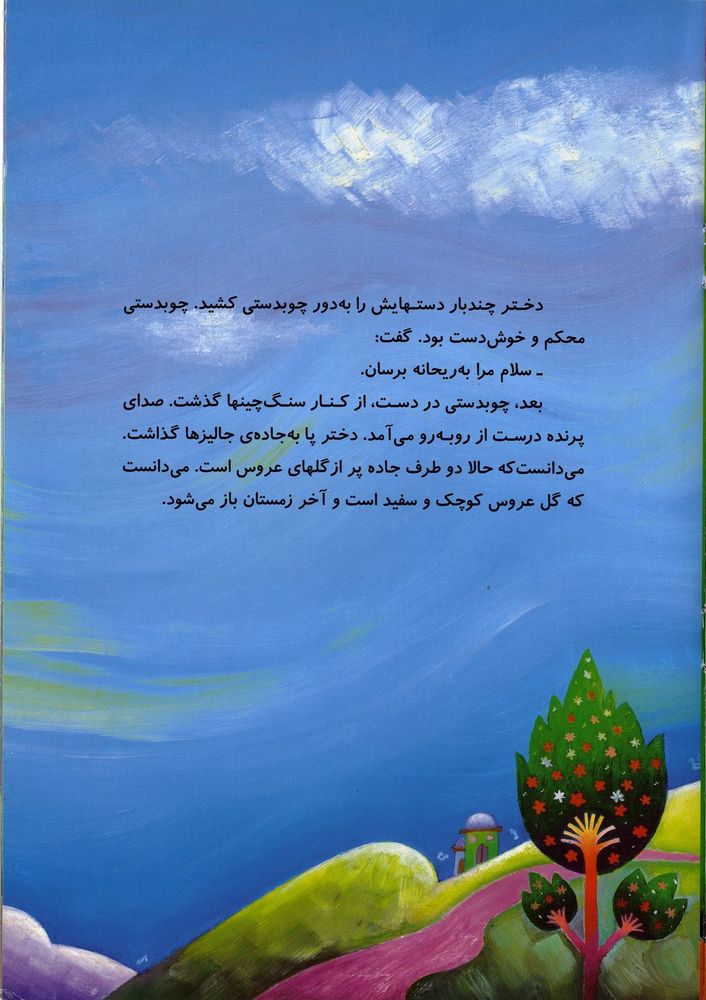 دختر چندبار دستهایش را به‌دور چوبدستی کشید. چوبدستی
محکم و خوش‌دست بود. گفت:
ـ سلام مرا به‌ریحانه برسان.
بعد، چوبدستی در دست، از کنار سنگ‌چینها گذشت. صدای
پرنده درست از روبه‌رو می‌آمد. دختر پا به‌جاده‌ی جالیزها گذاشت.
می‌دانست‌که حالا دو طرف جاده پر از گلهای عروس است. می‌دانست
که گل عروس کوچک و سفید است و آخر زمستان باز می‌شود.